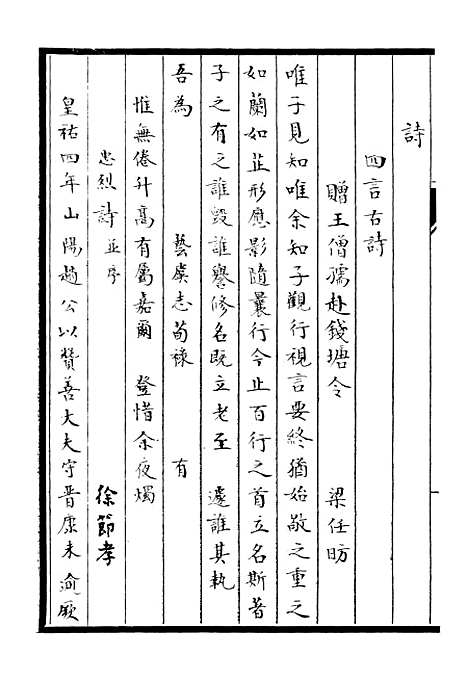 詩
四言古詩
贈王僧孺赴錢塘令 梁任昉
唯子見知唯余知子觀行視言要終猶始敬之重之
如蘭如芷形應影隨曩行今止百行之首立名斯著
子之有之誰毀誰譽修名既立老至 遽誰其執
吾為 藝虞志荀祿 有
惟無倦升高有屬嘉爾 登惜余夜燭
忠烈詩並序 徐節孝
皇祐四年山陽趙公以贊善大夫守晋康未逾厥